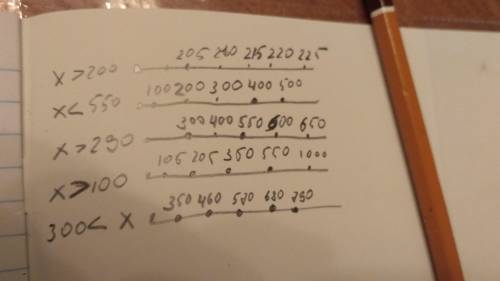 x > 200 205 210 215 220 225
x < 550 100 200 300 400 500
x > 290 300 400 550 600 650
x > 100 105 205 350 550 1000
300 < x 350 460 520 620 790